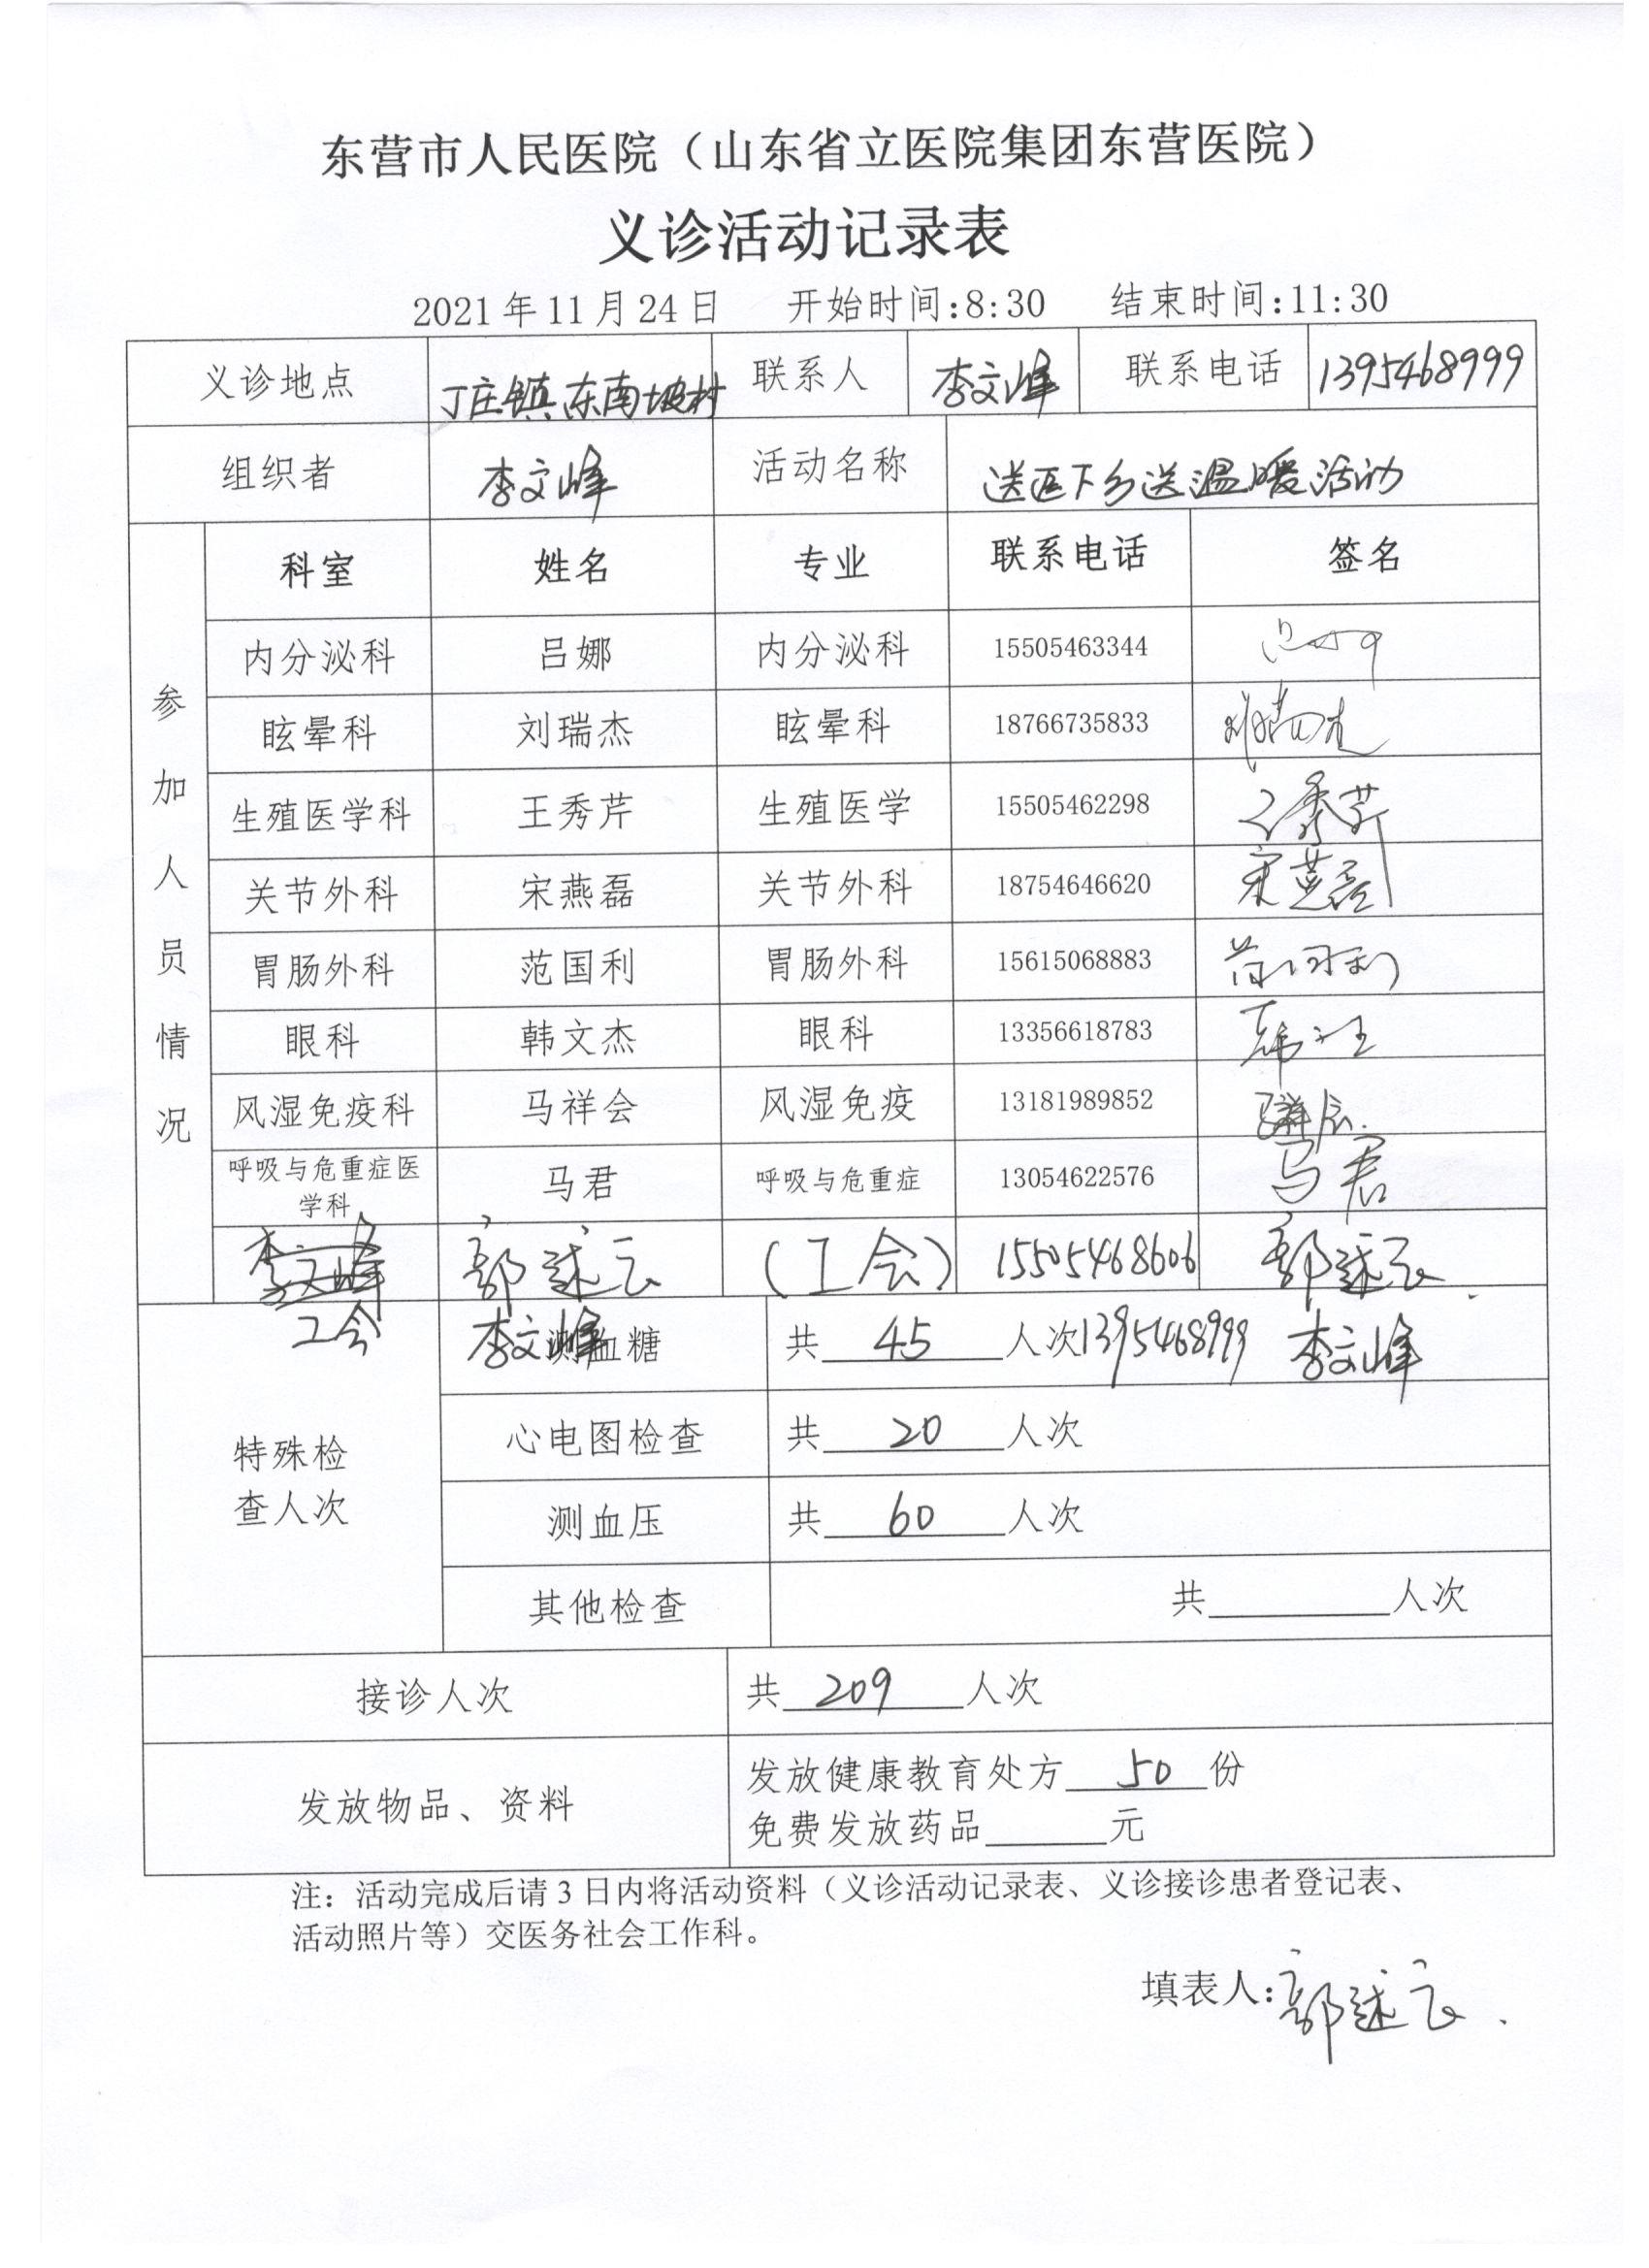 东营市人民医院（山东省立医院集团东营医院）
义诊活动记录表
2021年11月24日 开始时间:8:30 结束时间:11:30
义诊地点 丁庄镇东南坡村 联系人 李文峰 联系电话 1395468999
组织者 李文峰 活动名称 送医下乡送温暖活动
参加人员情况
科室 姓名 专业 联系电话 签名
内分泌科 吕娜 内分泌科 15505463344
眩晕科 刘瑞杰 眩晕科 18766735833 刘瑞杰
生殖医学科 王秀芹 生殖医学 15505462298 王秀芹
关节外科 宋燕磊 关节外科 18754646620 宋燕磊
胃肠外科 范国利 胃肠外科 15615068883 范国利
眼科 韩文杰 眼科 13356618783
风湿免疫科 马祥会 风湿免疫 13181989852 马祥会
呼吸与危重症医学科 马君 呼吸与危重症 13054622576 马君
李文峰 郭述云 (工会) 15505468606 郭述云
工会 李文峰 1395468999 李文峰
特殊检查人次
测血糖 共45人次
心电图检查 共20人次
测血压 共60人次
其他检查 共 人次
接诊人次 共209人次
发放物品、资料 发放健康教育处方50份
免费发放药品 元
注：活动完成后请3日内将活动资料（义诊活动记录表、义诊接诊患者登记表、
活动照片等）交医务社会工作科。
填表人:郭述云